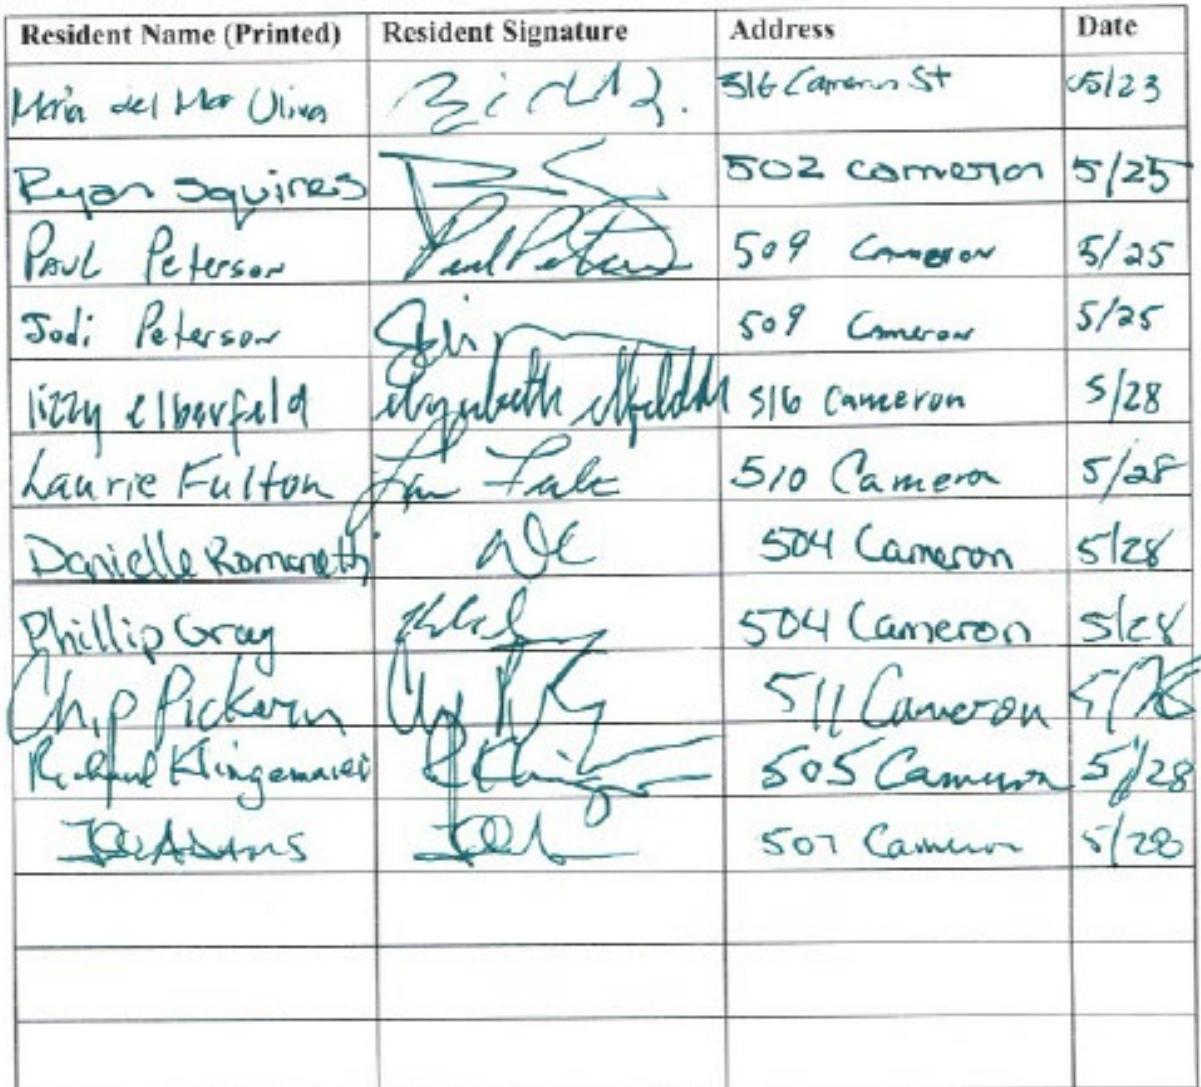 Resident Name (Printed) Resident Signature Address Date
Maria del Mar Oliva 516 Cameron St 05/23
Ryan Squires 502 Cameron 5/25
Paul Peterson Paul Peterson 509 Cameron 5/25
Jodi Peterson 509 Cameron 5/25
lizzy elberfeld 516 Cameron 5/28
Laurie Fulton 510 Cameron 5/28
Danielle Romanetti 504 Cameron 5/28
Phillip Gray 504 Cameron 5/28
Chip Pickern 511 Cameron
Richard Klingemaier 505 Cameron 5/28
Joe Adams 507 Cameron 5/28